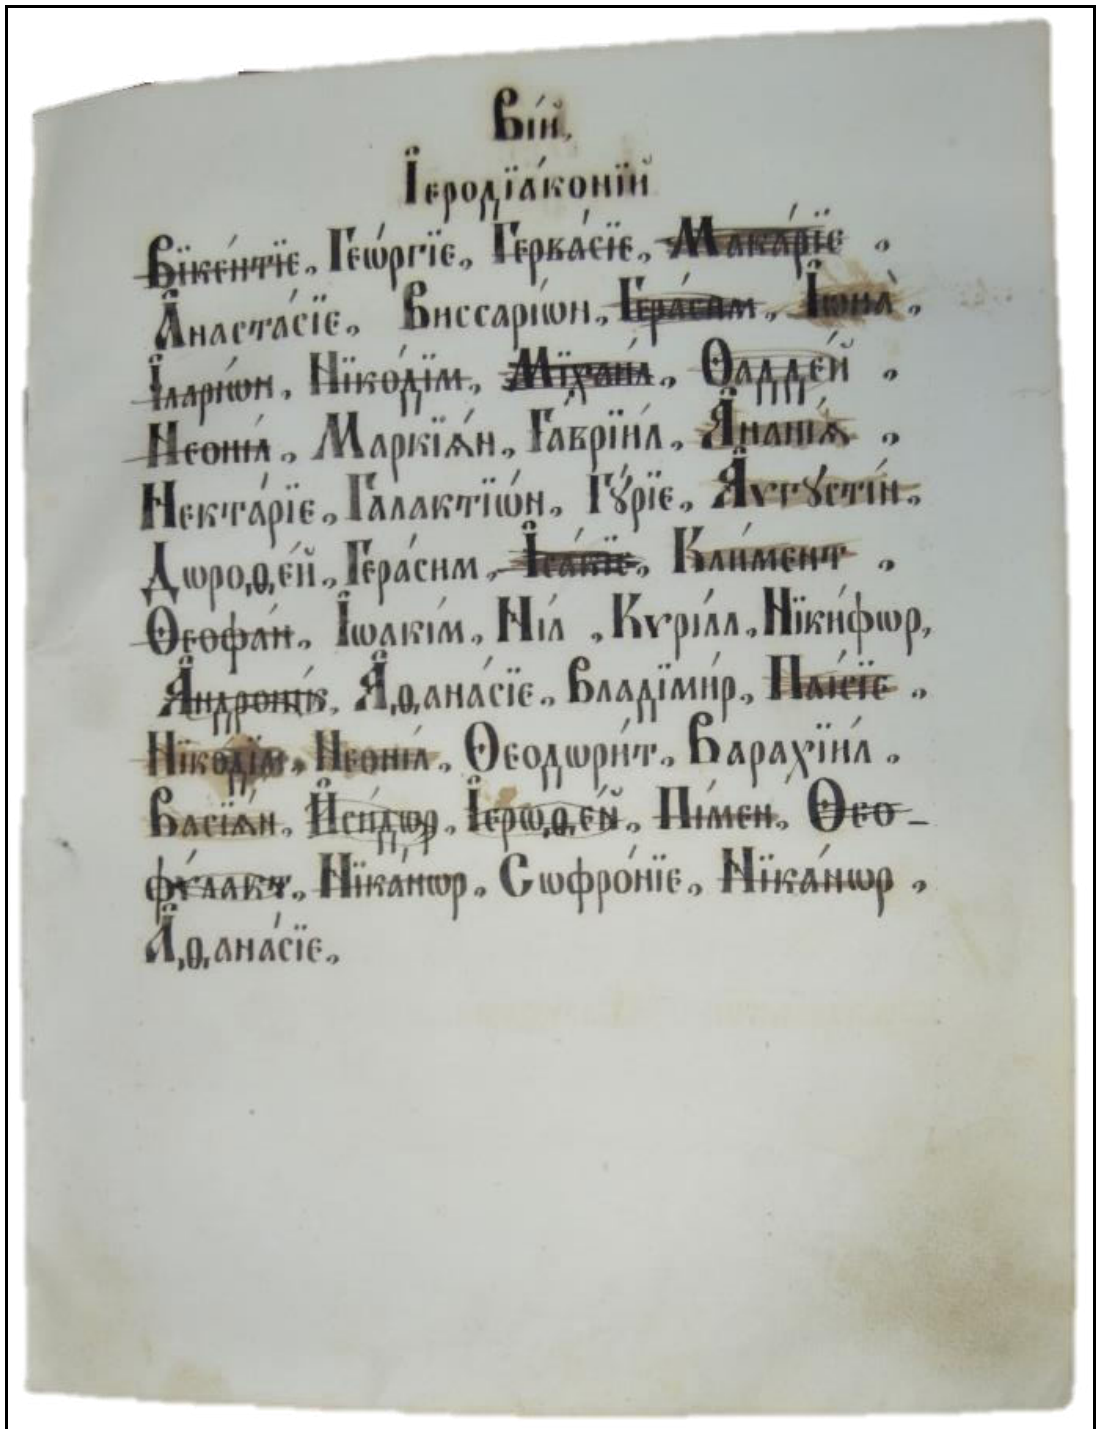 Вїй,
Іеродїа́конїй
Вїке́нтїе, Геѡ́ргїе, Герва́сїе, Мака́рїе ,
А҆наста́сїе, Виссарїѡ́н, Гера́сим, І҆ѡна̀,
І҆ларїѡ́н, Нїко́дїм, Мїхаи́л, Ѳадде́й ,
Неоні́л, Маркїѧ́н, Гаврїи́л, А҆на́нїѧ ,
Некта́рїе, Галактїѡ́н, Гꙋ́рїе, А҆ѵгꙋсті́н,
Дѡроѳе́й, Гера́сим, І҆са́кїе, Кли́мент ,
Ѳеофа́н, І҆ѡакі́м, Ні́л , Кѵрі́лл, Нїки́фѡр,
А҆ѳана́сїе, Владїми́р, Паі́сїе ,
Нїко́дїм, Неоні́л, Ѳеодѡри́т, Варахїи́л ,
Васїѧ́н, И҆си́дѡр, І҆ерѡѳе́й, Пі́мен, Ѳео-
фѵ́лакт, Нїка́нѡр, Сѡфро́нїе, Нїка́нѡр ,
А҆ѳана́сїе,